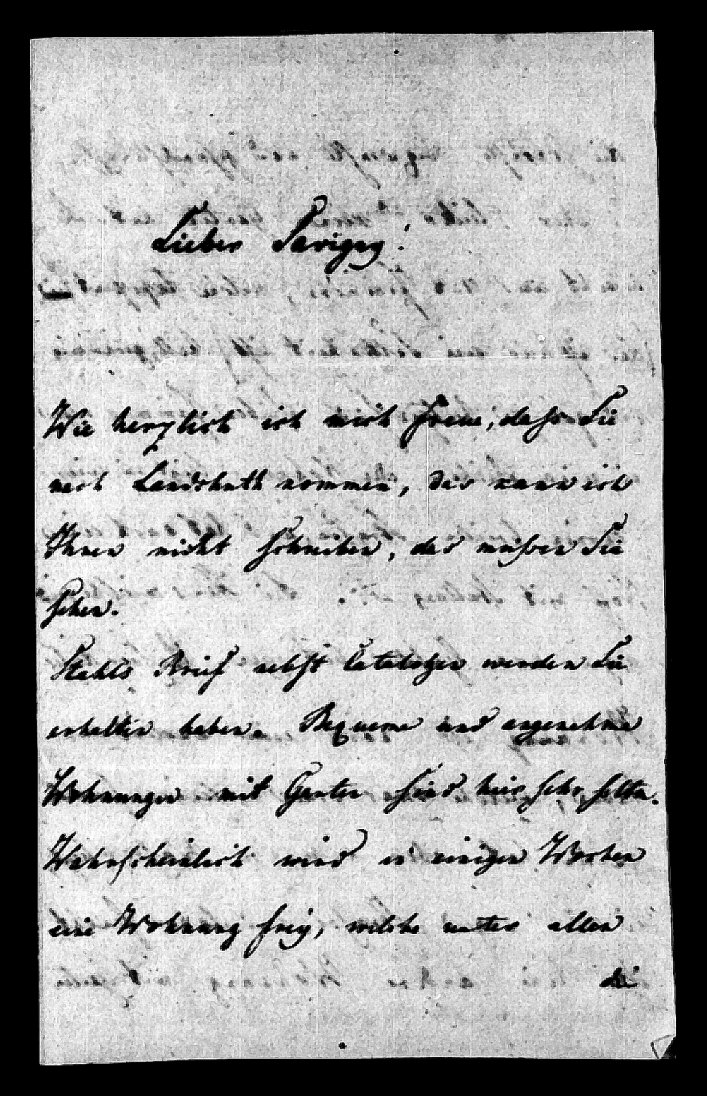 Lieber Savigny!
Wie herzlich ich mich freue, daß Sie
nach Landshuth kommen, das kann ich
Ihnen nicht schreiben, das müßen Sie
sehen.
Stahls Brief nebst Catalogen werden Sie
erhalten haben. Bequeme und angenehme
Wohnungen mit Garten sind hier sehr selten.
Wahrscheinlich wird in einigen Wochen
eine Wohnung frey, welche unter allen
die